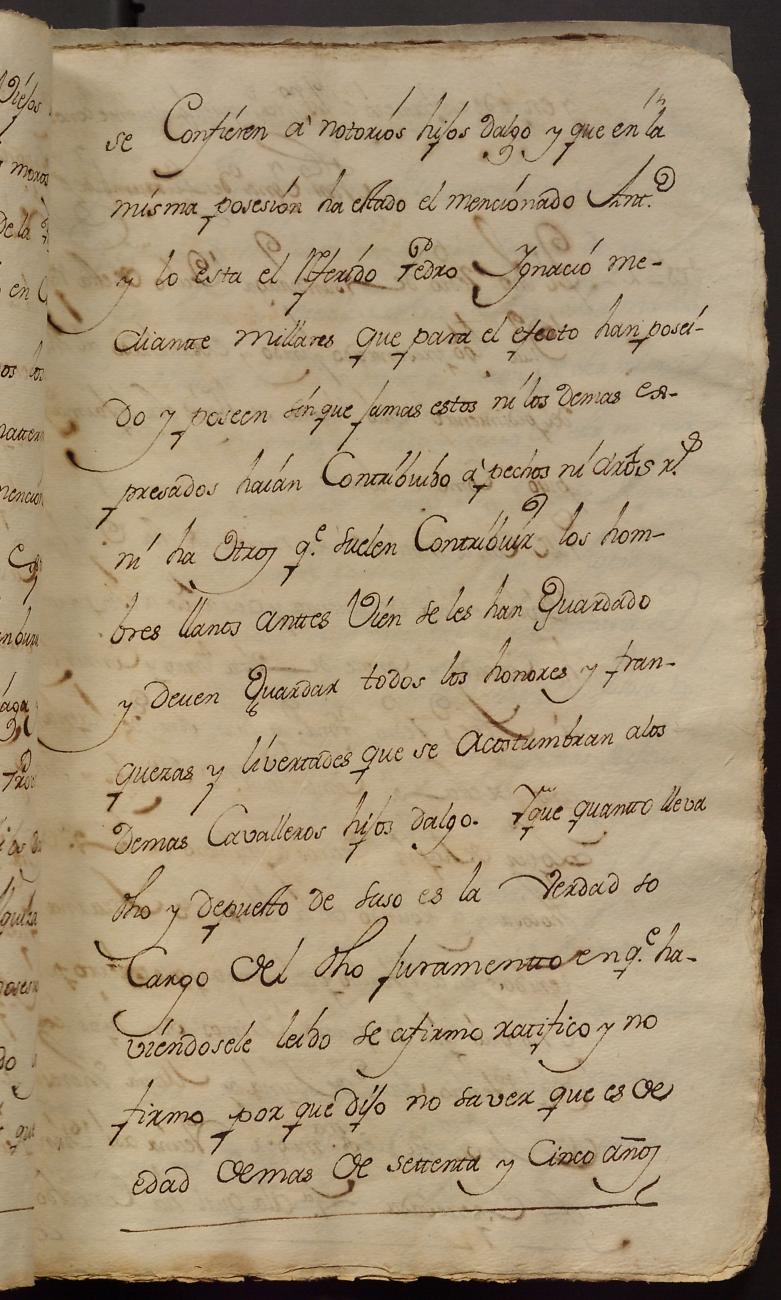 se Confiéren à notoriós hijos dalgo y que en la
misma posesión ha estado el mencionado Ant.º
y lo está el Referido Pedro Ignació me-
diantte Millares que para el efecto han poseí-
do y poseen sinque jamas estos ni los demas ex-
presados haián Contribuido à pechos ni
ni ha otros q.e suelen Contribuir los hom-
bres llanos anttes Vién se les han Guardado
y deven Guardar todos los honores y fran-
quezas y livertades que se Acostumbran alos
demas Cavalleros hijos dalgo. Yque quantto lleva
dho y depuesto de suso es la Verdad so
Cargo del dho juramentto en q.e ha-
viéndosele leido se afirmo ratifico y no
firmo por que dijo no saver que es de
edad demas de settenta y Cinco años